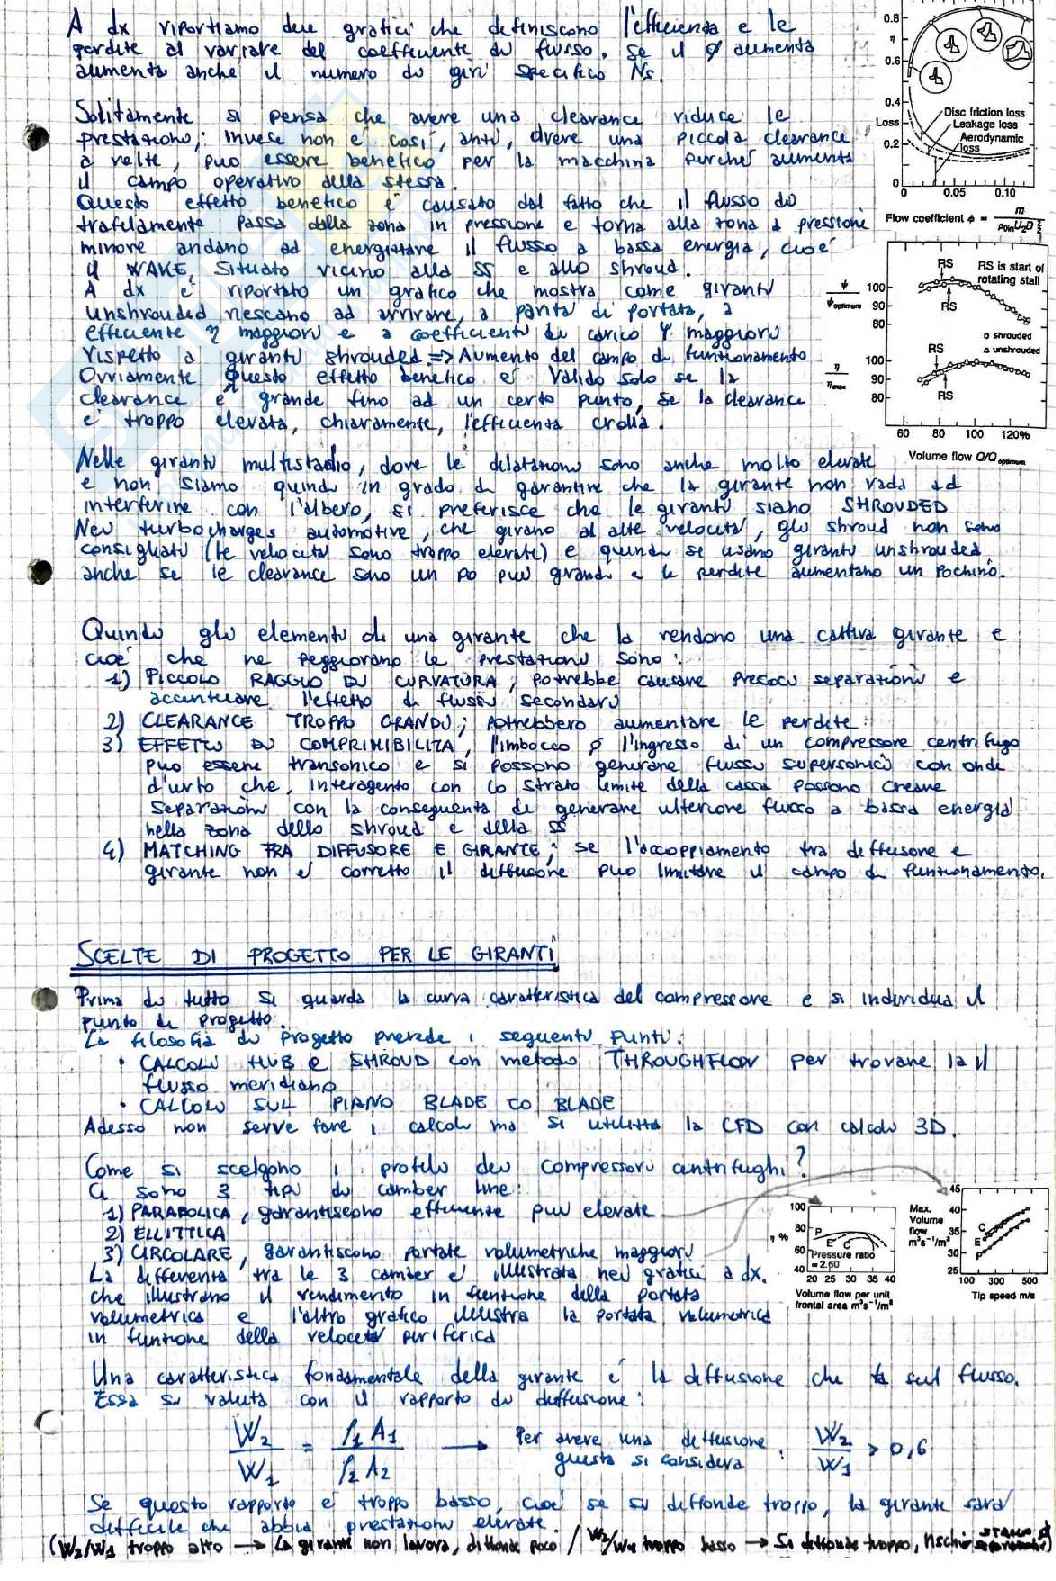 A dx riportiamo due grafici che definiscono l'efficienza e le
perdite al variare del coefficiente di flusso. Se il φ aumenta
aumenta anche il numero di giri specifico Ns.
Solitamente si pensa che avere una clearance riduce le
prestazioni; invece non è così, anzi, avere una piccola clearance
a volte, può essere benefico per la macchina perché aumenta
il campo operativo della stessa.
Questo effetto benefico è causato dal fatto che il flusso di
trafilamento passa dalla zona in pressione e torna alla zona a pressione
minore andando ad energizzare il flusso a bassa energia, cioè
il WAKE, situato vicino alla SS e allo shroud.
A dx è riportato un grafico che mostra come giranti
unshrouded riescano ad arrivare, a parità di portata, a
efficienze η maggiori e a coefficienti di carico ψ maggiori
rispetto a giranti shrouded => Aumento del campo di funzionamento
Ovviamente questo effetto benefico è valido solo se la
clearance è grande fino ad un certo punto, se la clearance
è troppo elevata, chiaramente, l'efficienza crolla.
Nelle giranti multistadio, dove le dilatazioni sono anche molto elevate
e non siamo quindi in grado di garantire che la girante non vada ad
interferire con l'albero, si preferisce che le giranti siano SHROUDED
Nei turbocharges automotive, che girano ad alte velocità, gli shroud non sono
consigliati (le velocità sono troppo elevate) e quindi si usano giranti unshrouded
anche se le clearance sono un po più grandi e le perdite aumentano un pochino.
Quindi gli elementi di una girante che la rendono una cattiva girante e
cioè che ne peggiorano le prestazioni sono:
1) PICCOLO RAGGIO DI CURVATURA, potrebbe causare precoci separazioni e
accentuare l'effetto di flussi secondari
2) CLEARANCE TROPPO GRANDI; potrebbero aumentare le perdite.
3) EFFETTI DI COMPRIMIBILITA, l'imbocco o l'ingresso di un compressore centrifugo
può essere transonico e si possono generare flussi supersonici con onde
d'urto che, interagento con lo strato limite della cassa possono creare
separazioni con la conseguenza di generare ulteriore flusso a bassa energia
nella zona dello shroud e della SS
4) MATCHING TRA DIFFUSORE E GIRANTE; se l'accoppiamento tra diffusore e
girante non è corretto il diffusore può limitare il campo di funzionamento.
SCELTE DI PROGETTO PER LE GIRANTI
Prima di tutto si guarda la curva caratteristica del compressore e si individua il
punto di progetto.
La filosofia di progetto prevede i seguenti punti:
• CALCOLI HUB e SHROUD con metodo THROUGHFLOW per trovare la il
flusso meridiano
• CALCOLI SUL PIANO BLADE TO BLADE
Adesso non serve fare i calcoli ma si utilizza la CFD con calcoli 3D.
Come si scelgono i profili dei compressori centrifughi?
Ci sono 3 tipi di camber line:
1) PARABOLICA, garantiscono efficienze più elevate
2) ELLITTICA
3) CIRCOLARE, garantiscono portate volumetriche maggiori
La differenza tra le 3 camber è illustrata nei grafici a dx.
che illustrano il rendimento in funzione della portata
volumetrica e l'altro grafico illustra la portata volumetrica
in funzione della velocità periferica
Una caratteristica fondamentale della girante è la diffusione che fa sul flusso.
Essa si valuta con il rapporto di diffusione:
W2/W1 = ρ1 A1/ρ2 A2 → Per avere una diffusione giusta si considera: W2/W1 > 0,6
Se questo rapporto è troppo basso, cioè se si diffonde troppo, la girante sarà
difficile che abbia prestazioni elevate.
(W2/W1 troppo alto → La girante non lavora, diffonde poco / W2/W1 troppo basso → Si diffonde troppo, rischio
0.8
η
0.6
0.4
Loss
0.2
0
Disc friction loss
Leakage loss
Aerodynamic
loss
0 0.05 0.10
Flow coefficient φ =
RS
RS is start of
rotating stall
ψ
ψ optimum
100
90
80
RS
o shrouded
unshrouded
RS
η
100
90
80
RS
60 80 100 120%
Volume flow Q/Q optimum
100
η % 80
60
40
P
E
C
Pressure ratio
= 2.60
20 25 30 35 40
Volume flow per unit
frontal area m³s⁻¹/m²
45
Max. 40
Volume
flow 35
m³s⁻¹/m²
30
25
C
E
P
100 300 500
Tip speed m/s